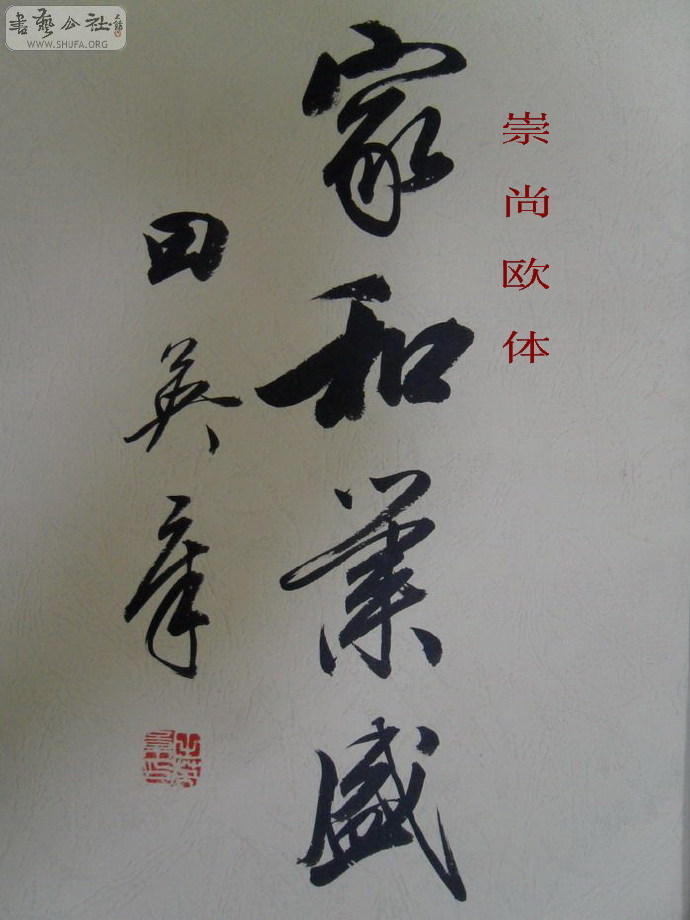 書藝公社
WWW.SHUFA.ORG
崇尚欧体
家和業盛
田英章